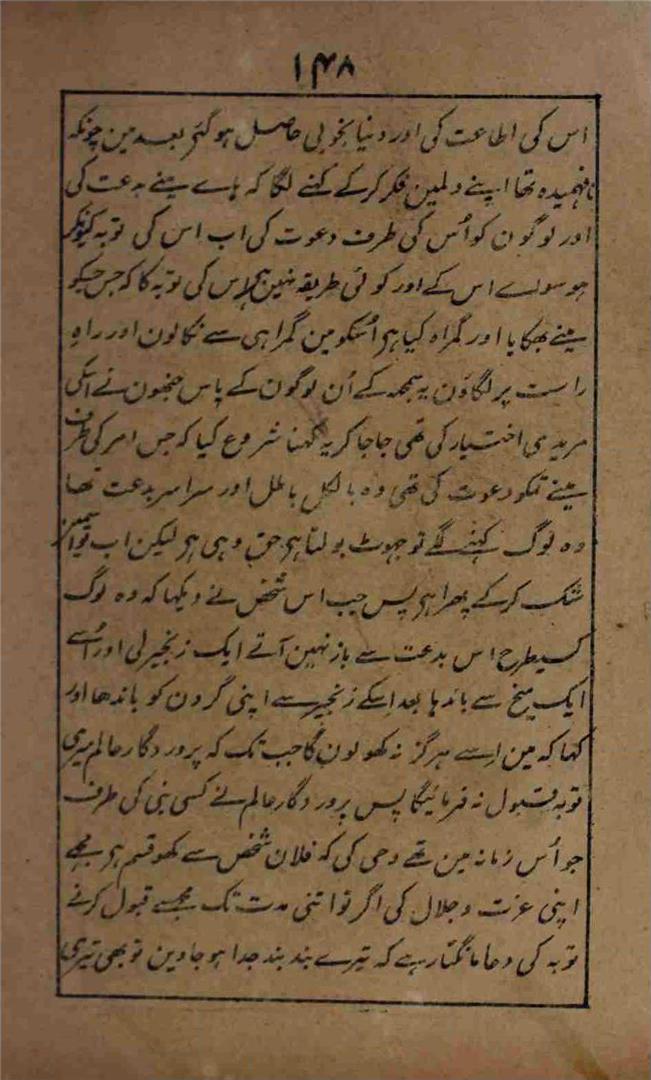 ۱۴۸
اس کی اطاعت کی اور دنیا بخوبی حاصل ہوگئی بعد مین چونکہ
نافہمیدہ تھا اپنے دلمین فکر کرکے کہنے لگا کہ ہاے مینے بدعت کی
اور لوگون کو اُس کی طرف دعوت کی اب اس کی توبہ کیونکر
ہو سواے اس کے اور کوئی طریقہ نہین ہی اِس کی توبہ کا کہ جس جسکو
مینے بھکایا اور گمراہ کیا ہی اُسکو مین گمراہی سے نکالون اور راہِ
راست پر لگاؤن یہ سمجھ کے اُن لوگون کے پاس جنھون نے اسکی
مریدی اختیار کی تھی جا جا کر یہ کہنا شروع کیا کہ جس امر کی طرف
مینے تمکو دعوت کی تھی وہ بالکل باطل اور سراسر بدعت تھا
وہ لوگ کہنے لگے تو جھوٹ بولتا ہی حق وہی ہی لیکن اب تو اسمین
شک کرکے پھرا ہی پس جب اس شخص نے دیکھا کہ وہ لوگ
کسیطرح اس بدعت سے باز نہین آتے ایک زنجیر لی اور اُسے
ایک میخ سے باندہا بعد اسکے زنجیر سے اپنی گردن کو باندھا اور
کہا کہ مین اِسے ہرگز نہ کھولون گا جب تک کہ پروردگار عالم میری
توبہ قبول نہ فرمائیگا پس پروردگار عالم نے کسی نبی کی طرف
جو اُس زمانہ مین تھے وحی کی کہ فلان شخص سے کھو قسم ہی مجھے
اپنی عزت و جلال کی اگر تو اتنی مدت تک مجھسے قبول کرنے
توبہ کی دعا مانگتا رہے کہ تیرے بند بند جدا ہو جاوین تو بھی تیری